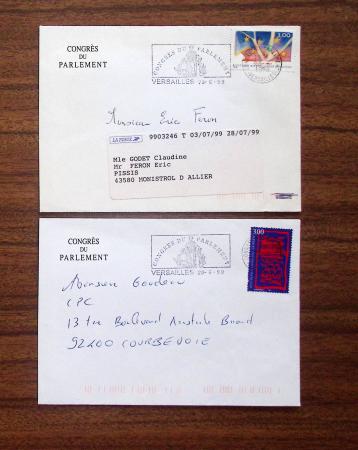 CONGRÈS
DU
PARLEMENT
CONGRÈS DU PARLEMENT
VERSAILLES 28-6-99
3,00
VERSAILLES
Monsieur Eric Feron
LA POSTE 9903246 T 03/07/99 28/07/99
Mle GODET Claudine
Mr FERON Eric
PISSIS
43580 MONISTROL D ALLIER
CONGRÈS
DU
PARLEMENT
CONGRÈS DU PARLEMENT
VERSAILLES 28-6-99
3,00
Monsieur
CPC
13 Boulevard Aristide Briand
92400 COURBEVOIE